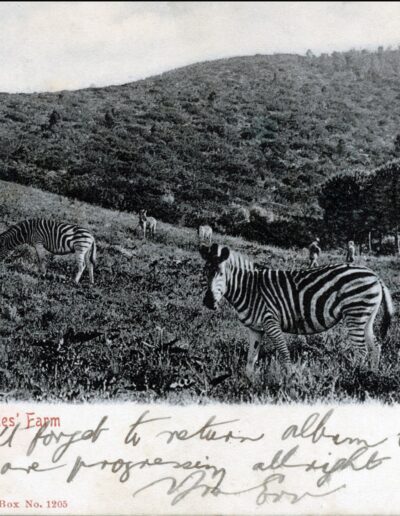 es' Farm
forget to return album
are progressing allright
Box No. 1205